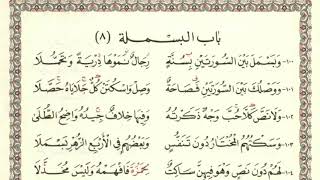 باب البسملة (٨)
١٠٠- وَبَسْمَلَ بَيْنَ السُّورَتَيْنِ بِسُنَّةٍ رِجَالٌ نَمَوْهَا دِرْيَةً وَتَحَمُّلَا
١٠١- وَوَصْلُكَ بَيْنَ السُّورَتَيْنِ فَصَاحَةٌ وَصِلْ وَاسْكُتَنْ كُلٌّ جَلَايَاهُ حَصَّلَا
١٠٢- وَلَا نَصَّ كَلَّا حُبَّ وَجْهٌ ذَكَرْتُهُ وَفِيهَا خِلَافٌ جِيدُهُ وَاضِحُ الطُّلَى
١٠٣- وَسَكْتُهُمُ الْمُخْتَارُ دُونَ تَنَفُّسٍ وَبَعْضُهُمُ فِي الْأَرْبَعِ الزُّهْرِ بَسْمَلَا
١٠٤- لَهُمْ دُونَ نَصٍّ وَهْوَ فِيهِنَّ سَاكِتٌ لِحَمْزَةَ فَافْهَمْهُ وَلَيْسَ مُخَذَّلَا